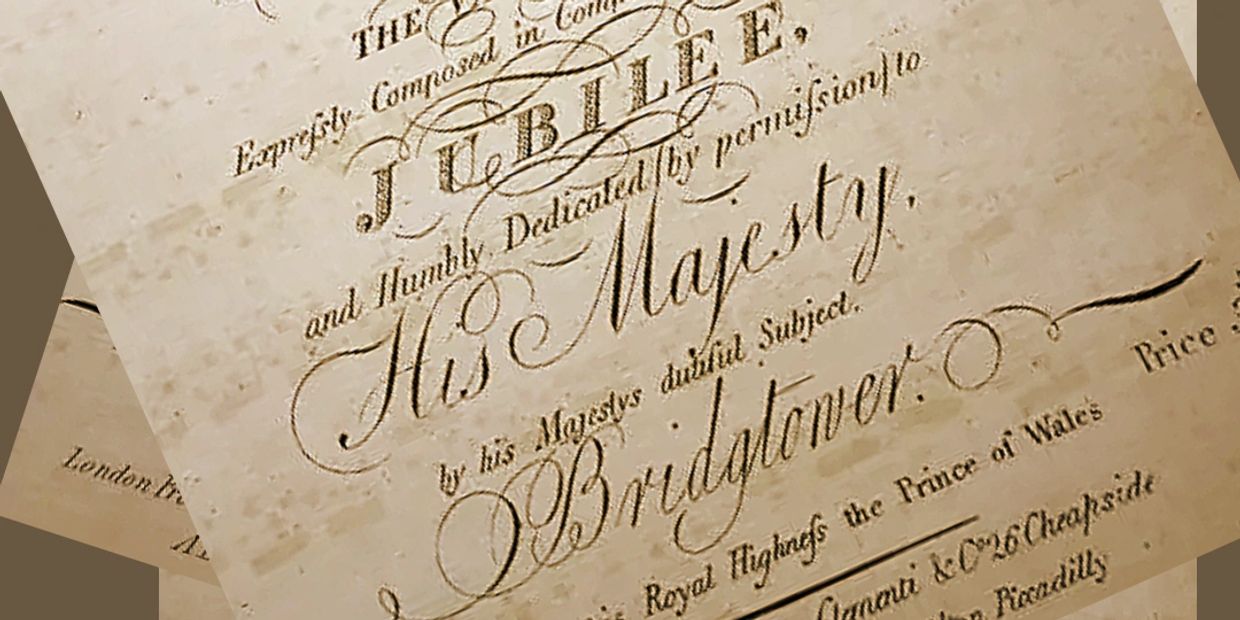 THE
Expreſsly Composed in
JUBILEE,
and Humbly Dedicated (by permiſsion) to
His Majesty,
by his Majestys dutiful Subject.
Bridgtower.
Price
Royal Highneſs the Prince of Wales
Clementi & Co. 26 Cheapside
Piccadilly
London